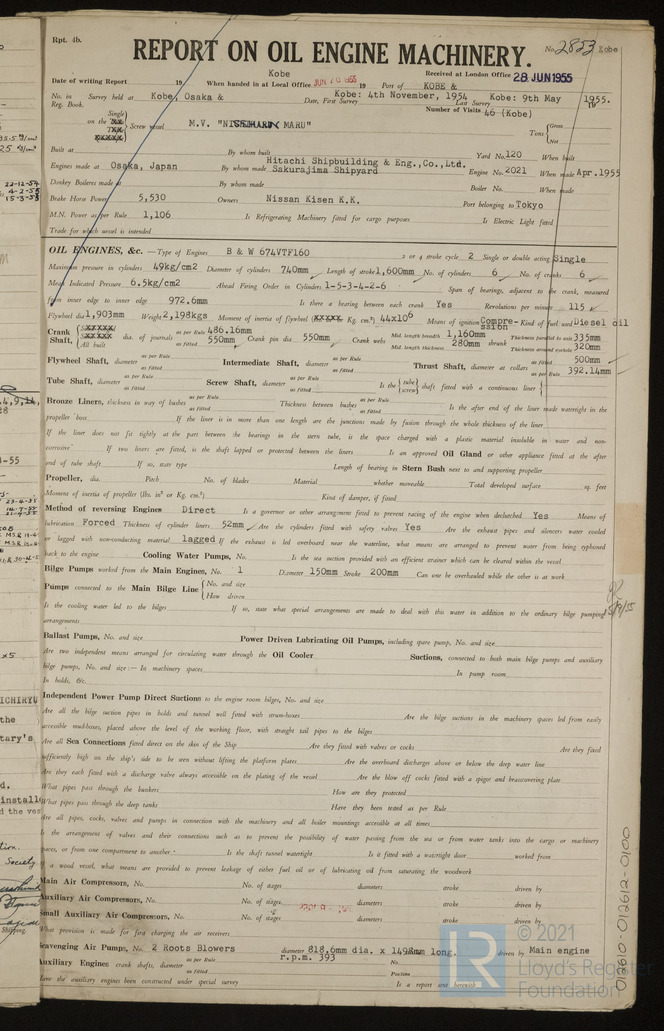 Rpt. 4b.
REPORT ON OIL ENGINE MACHINERY.
No. 2823 Kobe
Kobe
Received at London Office 28 JUN 1955
Date of writing Report 19 When handed in at Local Office 19 Port of KOBE &
No. in Survey held at Kobe, Osaka & Date, First Survey Kobe: 4th November, 1954 Last Survey Kobe: 9th May 1955.
Reg. Book.
Number of Visits 46 (Kobe)
Single
on the Screw vessel M.V. MARU"
Tons Gross
Net
Built at By whom built Yard No. 120 When built
Engines made at Osaka, Japan By whom made Hitachi Shipbuilding & Eng.,Co.,Ltd. Sakurajima Shipyard Engine No. 2021 When made Apr.1955
Donkey Boilers made at By whom made Boiler No. When made
Brake Horse Power 5,530 Owners Nissan Kisen K.K. Port belonging to Tokyo
M.N. Power as per Rule 1,106 Is Refrigerating Machinery fitted for cargo purposes Is Electric Light fitted
Trade for which vessel is intended
OIL ENGINES, &c.—Type of Engines B & W 674VTF160 2 or 4 stroke cycle 2 Single or double acting Single
Maximum pressure in cylinders 49kg/cm2 Diameter of cylinders 740mm Length of stroke 1,600mm No. of cylinders 6 No. of cranks 6
Mean Indicated Pressure 6.5kg/cm2 Ahead Firing Order in Cylinders 1-5-3-4-2-6 Span of bearings, adjacent to the crank, measured
from inner edge to inner edge 972.6mm Is there a bearing between each crank Yes Revolutions per minute 115
Flywheel dia. 1,903mm Weight 2,198kgs Moment of inertia of flywheel ( Kg. cm²) 44x10⁶ Means of ignition Compression Kind of fuel used Diesel oil
Crank Shaft, All built dia. of journals as per Rule 486.16mm as fitted 550mm Crank pin dia 550mm Crank webs Mid. length breadth 1,160mm Mid. length thickness 280mm shrunk Thickness parallel to axis 335mm Thickness around eyehole 320mm
Flywheel Shaft, diameter as per Rule as fitted Intermediate Shaft, diameter as per Rule as fitted Thrust Shaft, diameter at collars as fitted 500mm as per Rule 392.14mm
Tube Shaft, diameter as per Rule as fitted Screw Shaft, diameter as per Rule as fitted Is the tube screw shaft fitted with a continuous liner
Bronze Liners, thickness in way of bushes as per Rule as fitted Thickness between bushes as per Rule as fitted Is the after end of the liner made watertight in the
propeller boss If the liner is in more than one length are the junctions made by fusion through the whole thickness of the liner
If the liner does not fit tightly at the part between the bearings in the stern tube, is the space charged with a plastic material insoluble in water and non-
corrosive If two liners are fitted, is the shaft lapped or protected between the liners Is an approved Oil Gland or other appliance fitted at the after
end of tube shaft If so, state type Length of bearing in Stern Bush next to and supporting propeller
Propeller, dia. Pitch No. of blades Material whether moveable Total developed surface sq. feet
Moment of inertia of propeller (lbs. in² or Kg. cm.²) Kind of damper, if fitted
Method of reversing Engines Direct Is a governor or other arrangement fitted to prevent racing of the engine when declutched Yes Means of
lubrication Forced Thickness of cylinder liners 52mm Are the cylinders fitted with safety valves Yes Are the exhaust pipes and silencers water cooled
or lagged with non-conducting material lagged If the exhaust is led overboard near the waterline, what means are arranged to prevent water from being syphoned
back to the engine Cooling Water Pumps, No. Is the sea suction provided with an efficient strainer which can be cleared within the vessel
Bilge Pumps worked from the Main Engines, No. 1 Diameter 150mm Stroke 200mm Can one be overhauled while the other is at work
Pumps connected to the Main Bilge Line No. and size
How driven
Is the cooling water led to the bilges If so, state what special arrangements are made to deal with this water in addition to the ordinary bilge pumping
arrangements
Ballast Pumps, No. and size Power Driven Lubricating Oil Pumps, including spare pump, No. and size
Are two independent means arranged for circulating water through the Oil Cooler Suctions, connected to both main bilge pumps and auxiliary
bilge pumps, No. and size:—In machinery spaces In pump room
In holds, &c.
Independent Power Pump Direct Suctions to the engine room bilges, No. and size
Are all the bilge suction pipes in holds and tunnel well fitted with strum-boxes Are the bilge suctions in the machinery spaces led from easily
accessible mud-boxes, placed above the level of the working floor, with straight tail pipes to the bilges
Are all Sea Connections fitted direct on the skin of the Ship Are they fitted with valves or cocks Are they fixed
sufficiently high on the ship's side to be seen without lifting the platform plates Are the overboard discharges above or below the deep water line
Are they each fitted with a discharge valve always accessible on the plating of the vessel Are the blow off cocks fitted with a spigot and brass covering plate
What pipes pass through the bunkers How are they protected
What pipes pass through the deep tanks Have they been tested as per Rule
Are all pipes, cocks, valves and pumps in connection with the machinery and all boiler mountings accessible at all times
Is the arrangement of valves and their connections such as to prevent the possibility of water passing from the sea or from water tanks into the cargo or machinery
spaces, or from one compartment to another Is the shaft tunnel watertight Is it fitted with a watertight door worked from
If a wood vessel, what means are provided to prevent leakage of either fuel oil or of lubricating oil from saturating the woodwork
Main Air Compressors, No. No. of stages diameters stroke driven by
Auxiliary Air Compressors, No. No. of stages diameters stroke driven by
Small Auxiliary Air Compressors, No. No. of stages diameters stroke driven by
What provision is made for first charging the air receivers
Scavenging Air Pumps, No. 2 Roots Blowers diameter 818.6mm dia. x 1498mm long. driven by Main engine
r.p.m. 393
Auxiliary Engines crank shafts, diameter as per Rule as fitted No. Position
Have the auxiliary engines been constructed under special survey Is a report sent herewith
© 2021
Lloyd's Register
Foundation
012610-012612-0100